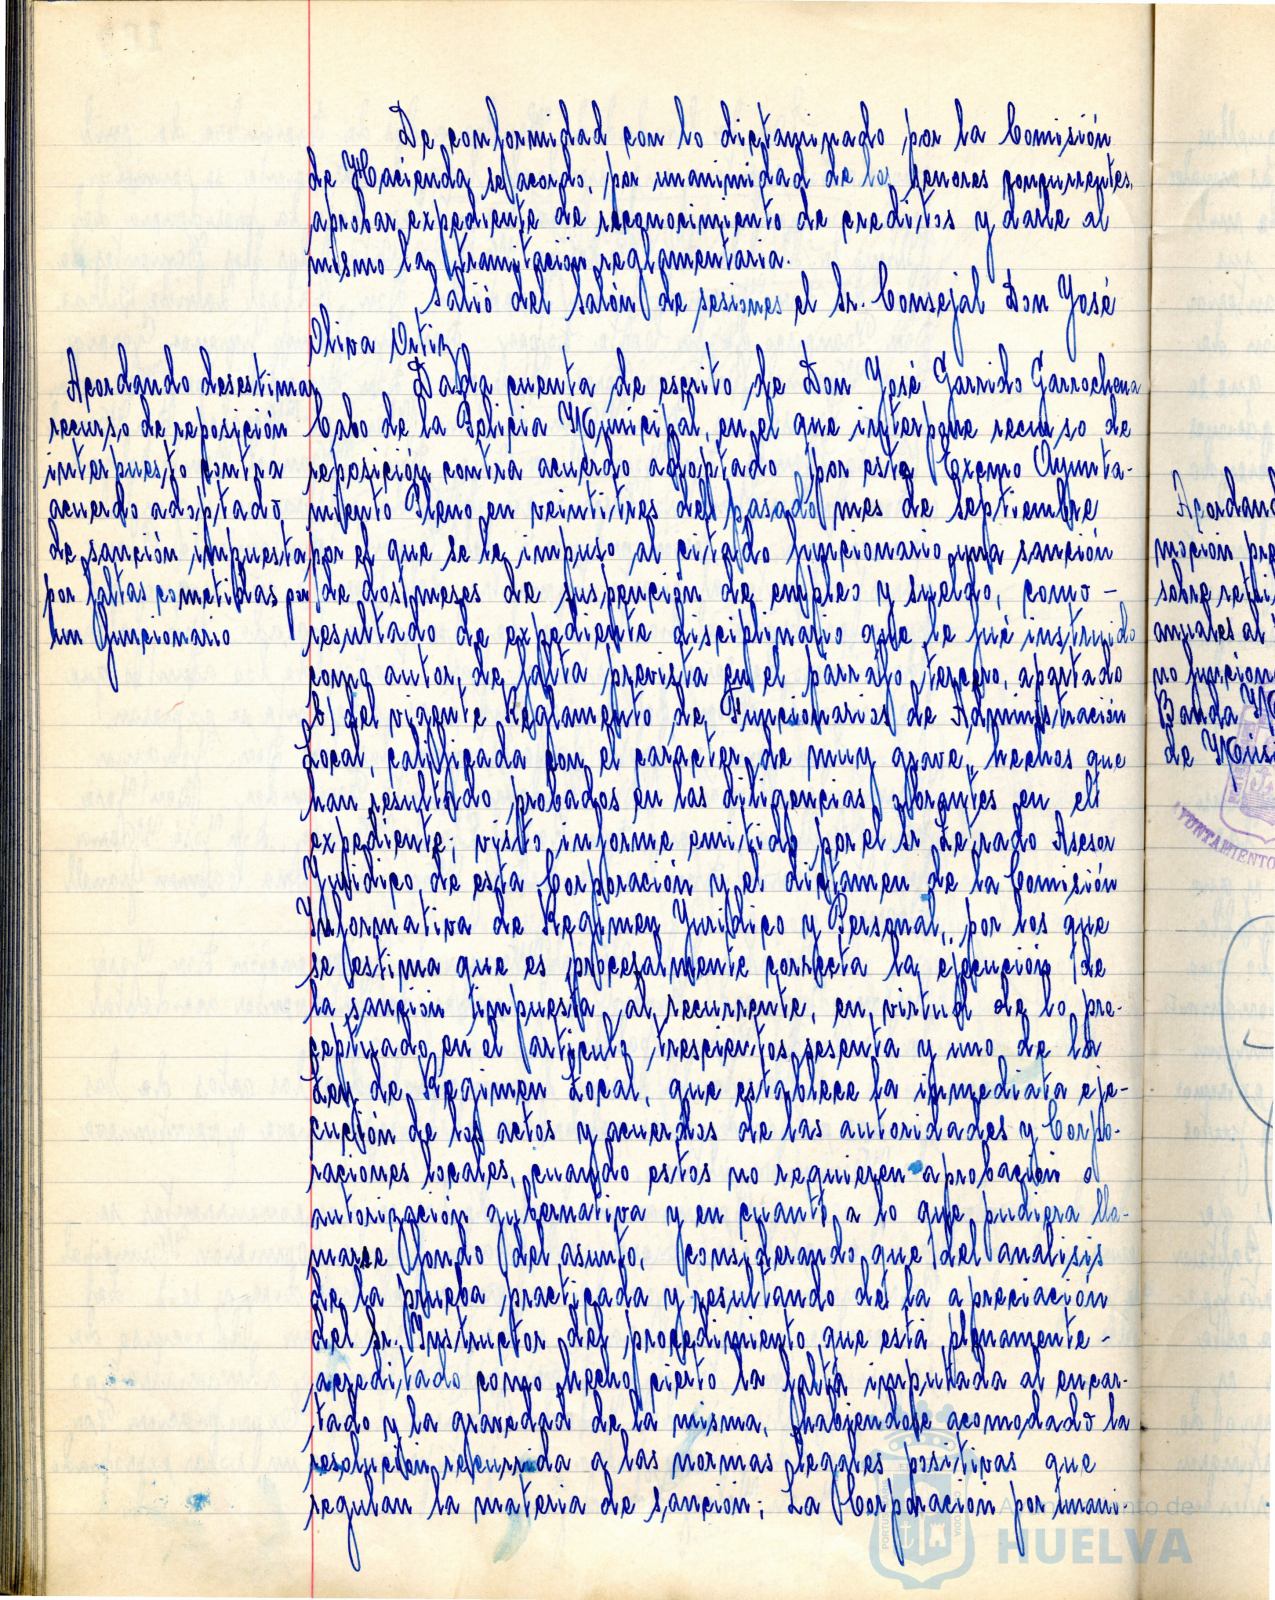 De conformidad con lo dictaminado por la Comisión
de Hacienda se acordó, por unanimidad de los señores concurrentes,
aprobar expediente de reconocimiento de creditos y darle al
mismo la tramitación reglamentaria.
Salió del salón de sesiones el Sr. Consejal Don José
Oliva Ortiz
Acordando desestimar
recurso de reposición
interpuesto contra
acuerdo adoptado,
de sanción impuesta
por faltas cometidas por
un funcionario
Dada cuenta de escrito de Don José Garrido Garrochena
Cabo de la Policia Municipal, en el que interpone recurso de
reposición contra acuerdo adoptado por este Excmo Ayunta-
miento Pleno en veintitres del pasado mes de Septiembre
por el que se le impuso al citado funcionario una sanción
de dos meses de suspención de empleo y sueldo, como -
resultado de expediente disciplinario que le fué instruido
como autor de falta prevista en el parrafo tercero, apartado
b) del vigente Reglamento de Funcionarios de Administración
Local, calificada con el caracter de muy grave, hechos que
han resultado probados en las diligencias obrantes en el
expediente; visto informe emitido por el Sr Letrado Asesor
Juridico de esta Corporación y el dictamen de la Comisión
Informativa de Regimen Juridico y Personal, por los que
se estima que es procesalmente correcta la ejecución de
la sanción impuesta al recurrente, en virtud de lo pre-
ceptuado en el articulo trescientos sesenta y uno de la
Ley de Regimen Local, que establece la inmediata eje-
cución de los actos y acuerdos de las autoridades y Corpo-
raciones locales, cuando estos no requieren aprobación o
autorización gubernativa y en cuanto a lo que pudiera lla-
marse fondo del asunto, considerando que del analisis
de la prueba practicada y resultando de la apreciación
del Sr. Instructor del procedimiento que está plenamente -
acreditado como hecho cierto la falta imputada al encar-
tado y la gravedad de la misma, habiendose acomodado la
resolución recurrida a las normas legales positivas que
regulan la materia de sanción; La Corporación por unani-
Acordand
moción pre
sobre retri
anuales al
no funcion
Banda M
de Músi
AYUNTAMIENTO
Ayuntamiento de
HUELVA